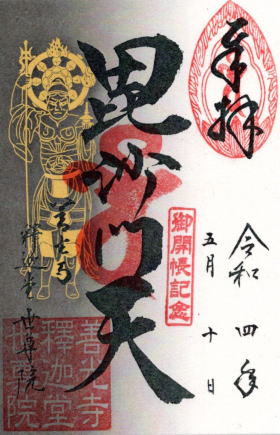 奉拝
令和四年
五月十日
御開帳記念
毘沙門天
善光寺
釋迦堂世尊院
善光寺
釋迦堂
世尊院